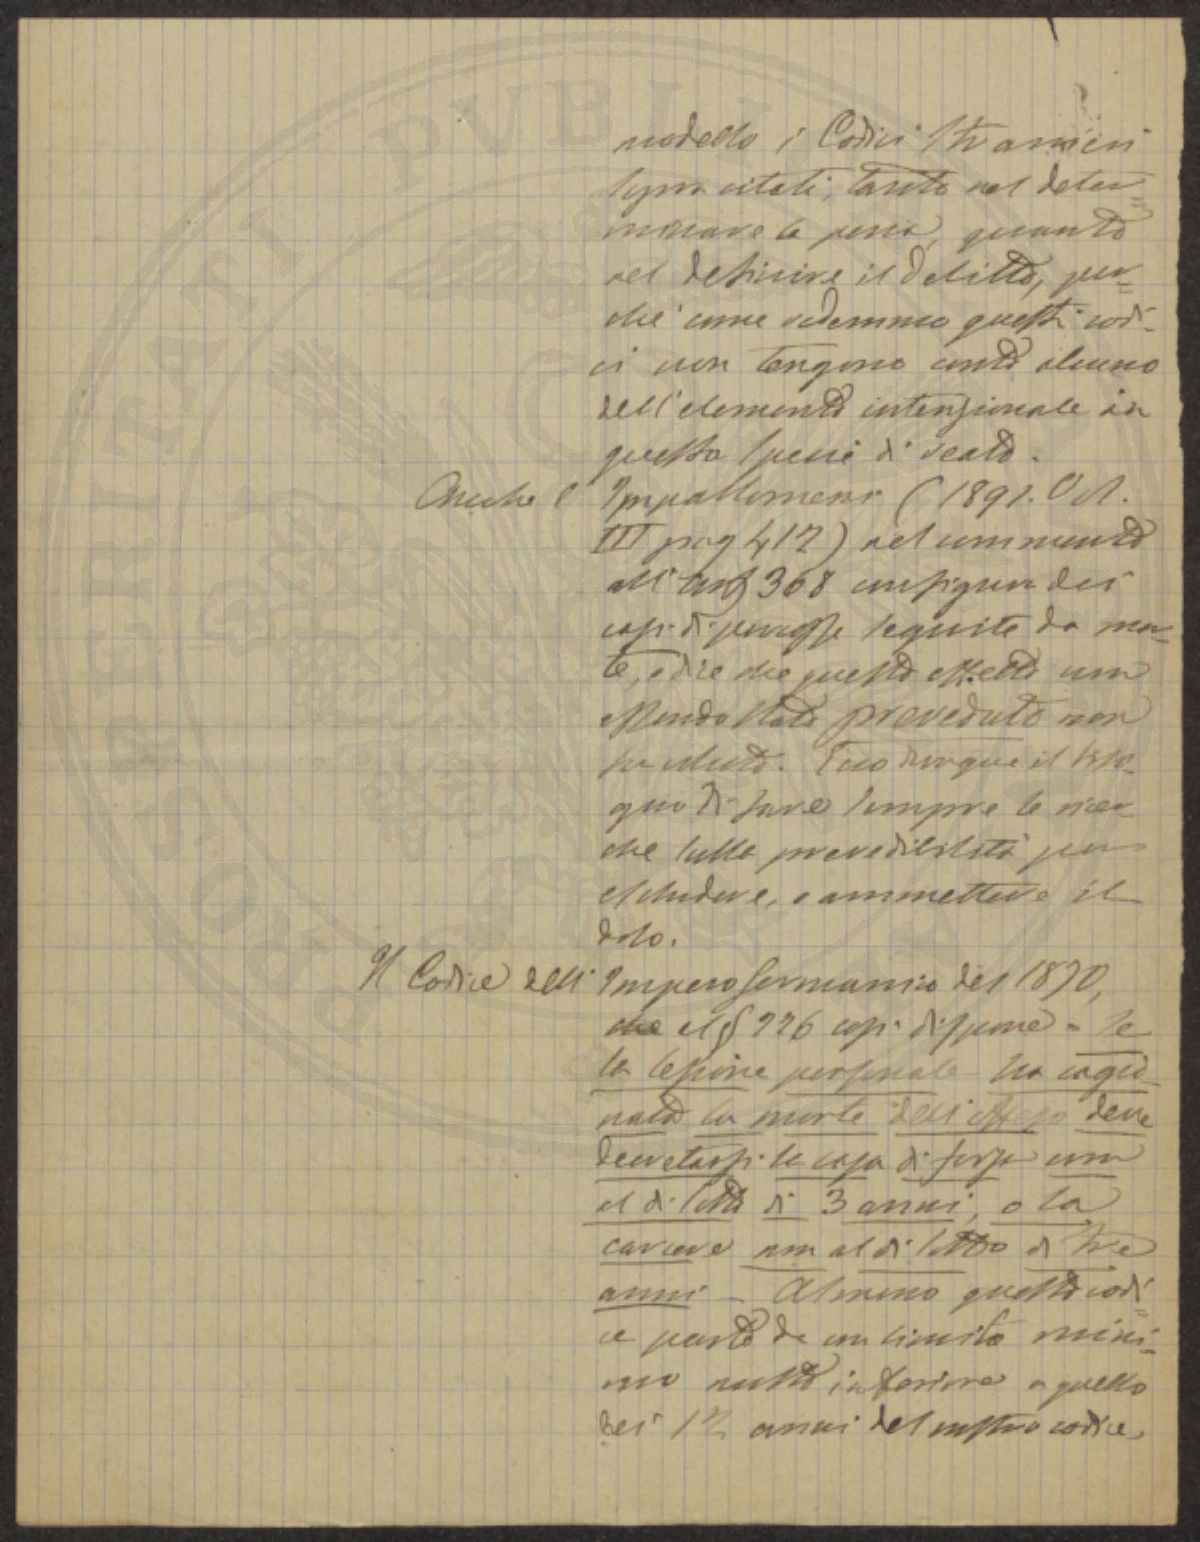 modello i Codici stranieri
sopra citati, tanto nel deter=
minare la pena, quanto
nel definire il delitto, per=
chè come vedemmo questi codi=
ci non tengono conto alcuno
dell'elemento intenzionale in
questa specie di reato.
Anche l'Impallomeni (1891. Vol.
III pag 412) nel commento
all'art 368 configura dei
casi di percosse seguite da mor=
te, e dice che questo effetto non
essendo stato preveduto non
fu voluto. Ecco dunque il biso=
gno di fare sempre le ricer
che sulla prevedibilità per
escludere, o ammettere il
dolo.
Il Codice dell'Impero Germanico del 1870,
che al § 226 così dispone = Se
la lesione personale ha cagio=
nato la morte dell'offeso deve
decretarsi la casa di forza non
al di sotto di 3 anni, o la
carcere non al di sotto di tre
anni - Almeno questo codi=
ce parte da un limite mini=
mo molto inferiore a quello
dei 12 anni del nostro codice,
POSTERITATI PUBLI